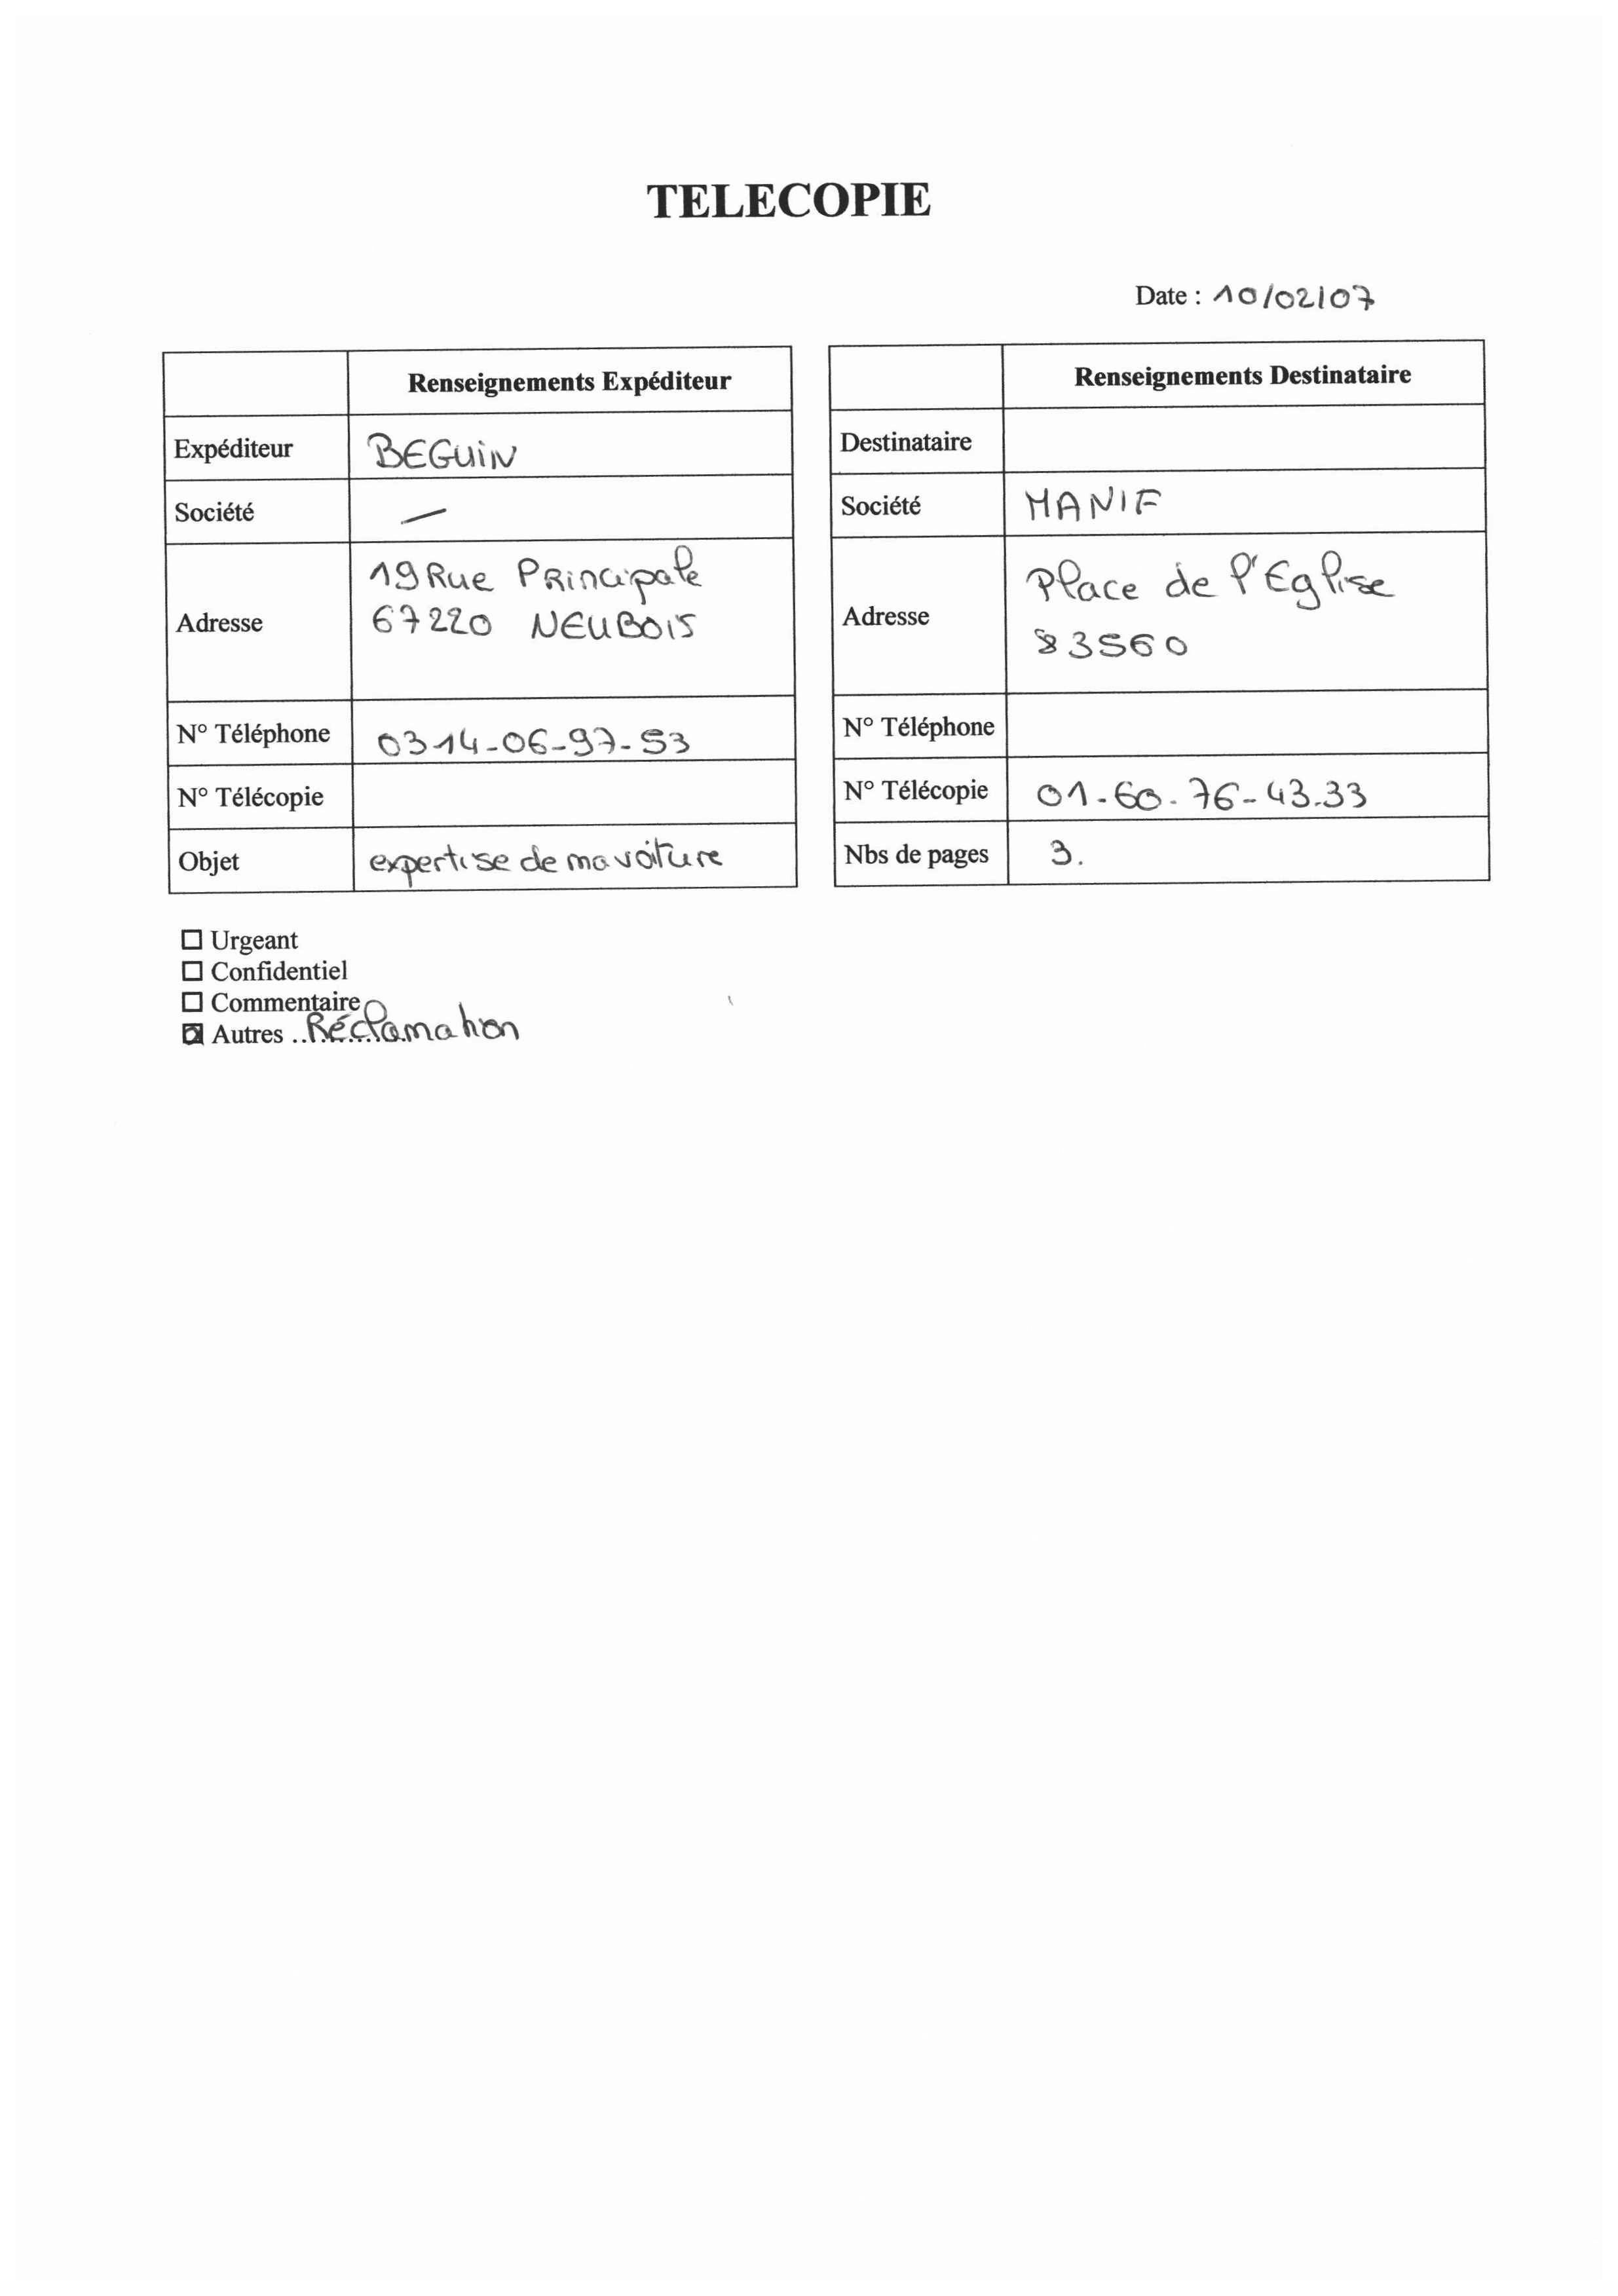 TELECOPIE
Date : 10/02/07
Renseignements Expéditeur
Expéditeur BEGUIN
Société —
Adresse 19 Rue Principale
67220 NEUBOIS
N° Téléphone 03-14-06-97-53
N° Télécopie
Objet expertise de ma voiture
Renseignements Destinataire
Destinataire
Société MANIF
Adresse Place de l'Eglise
83560
N° Téléphone
N° Télécopie 01-60-76-43.33
Nbs de pages 3.
☐ Urgeant
☐ Confidentiel
☐ Commentaire
☒ Autres .. Réclamation